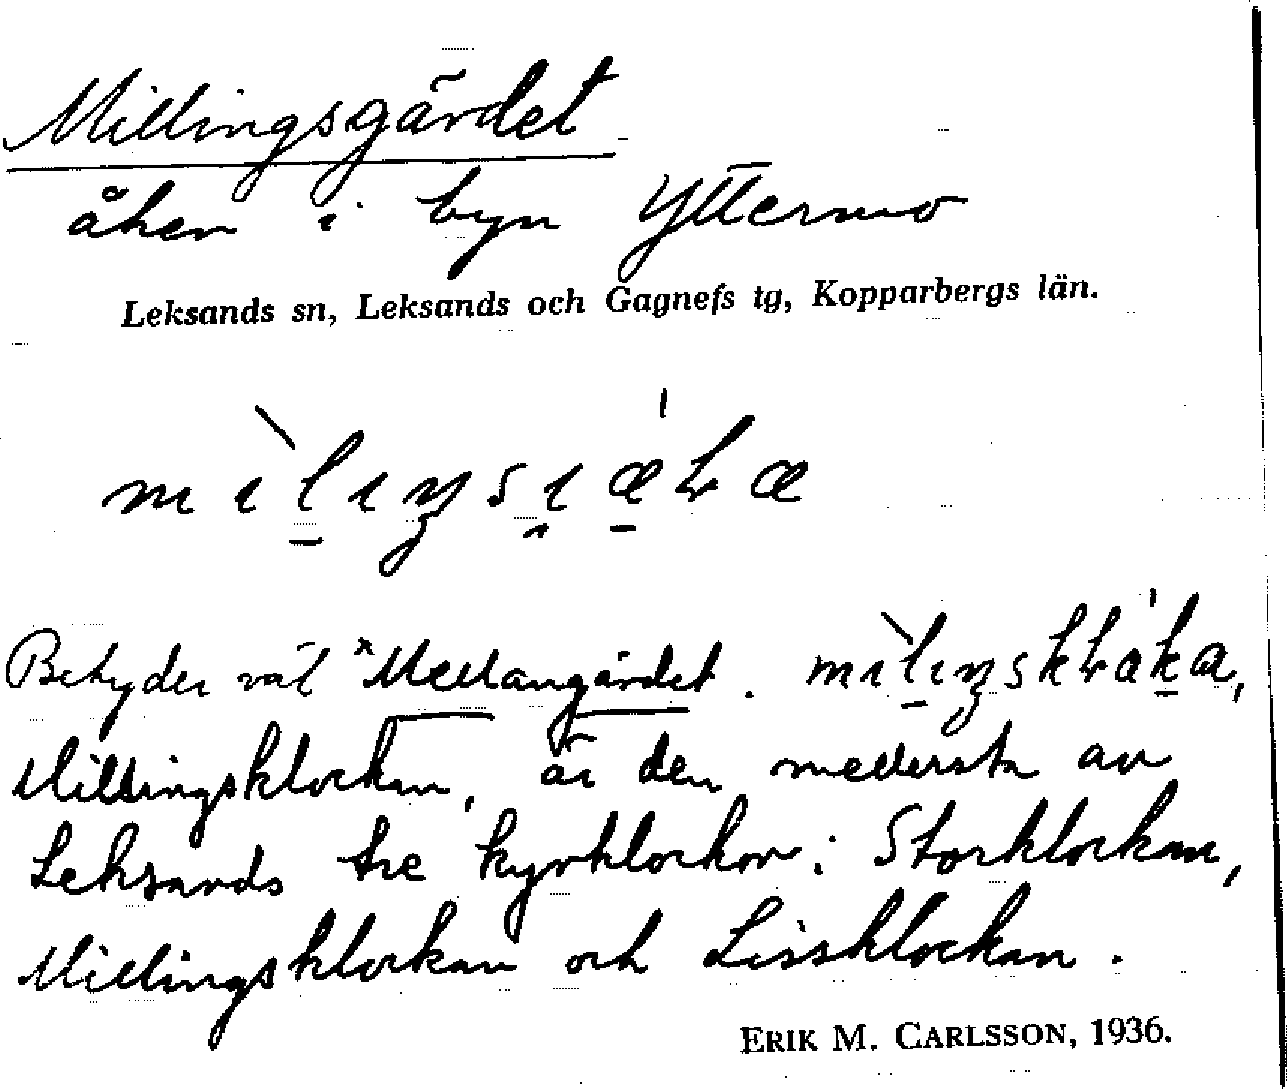 Millingsgärdet
åker i byn Yttermo
Leksands sn, Leksands och Gagnefs tg, Kopparbergs län.
Betyder väl "Mellangärdet.
Millingsklockan, är den mellersta av
Leksands tre kyrklockor: Storklockan,
Millingsklockan och Lissklockan.
ERIK M. CARLSSON, 1936.